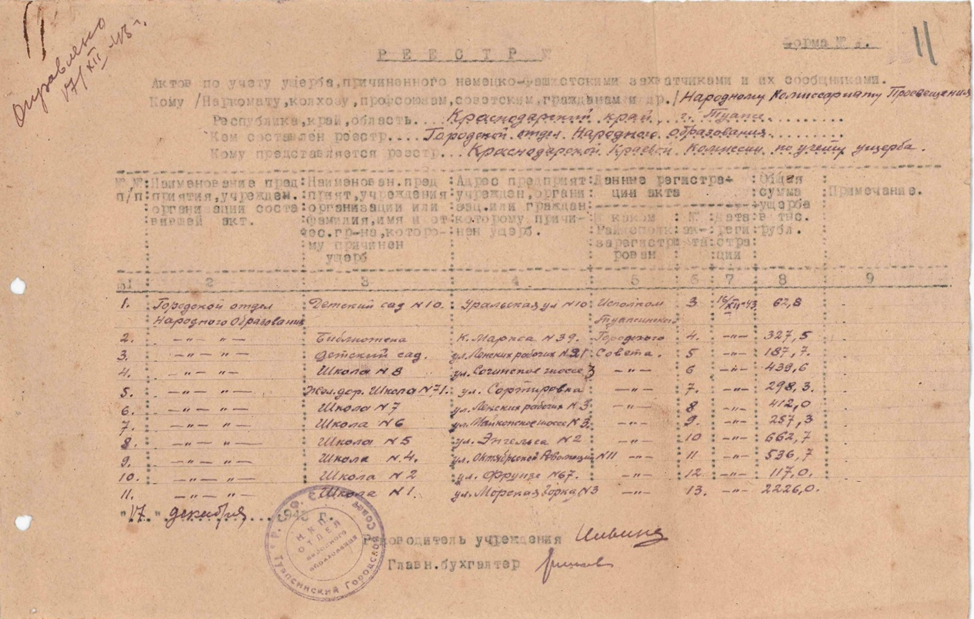 Отправлено
17/XII-43 г.
11
РЕЕСТР
Форма №
Актов по учету ущерба, причиненного немецко-фашистскими захватчиками и их сообщниками.
Кому /Наркомату, колхозу, профсоюзам, советским, гражданам и др./ Народному Комиссариату Просвещения
Республика, край, область Краснодарский край г. Туапс
Кем составлен реестр Городской отдел Народного Образования
Кому представляется реестр Краснодарской Краевой Комиссии по учету ущерба.
№ № п/п Наименование пред приятия, учрежден. организации соста вившей акт. Наименован. пред прият, учреждения организации или фамилия, имя и от чес. гр-на, которо- му причинен ущерб Адрес предприят учрежден, органи зац. или граждан которому причи- нен ущерб. Данные регистра- ции акта В каком Райисполк зарегистри рован № ак- та Дата реги стра ции Общая сумма ущерба в тыс. рубл. Примечание.
1 2 3 4 5 6 7 8 9
1. Городской отдел Детский сад №10. Уральская ул №10 Исполком 3 16/XII-43 62,8
Народного Образования Туапсинског
2. —"— "— Библиотека К. Маркса №39. Городского 4. —"— 327,5
3. —"— "— Детский сад. ул. Ленских рабочих №21 Совета. 5 —"— 187,7.
4. —"— "— Школа №8 ул. Сочинское шоссе 3 —"— 6 —"— 439,6
5. —"— "— Жел. дор. Школа №71. ул. Сортировка —"— 7. —"— 298,3.
6. —"— "— Школа №7 ул. Ленских рабочих №3. —"— 8 —"— 412,0
7. —"— "— Школа №6 ул. Майкопское шоссе №3. —"— 9. —"— 257,3
8. —"— "— Школа №5 ул. Энгельса №2 —"— 10 —"— 662,7
9. —"— "— Школа №4. ул. Октябрьской Революции №11 —"— 11 —"— 536,7
10. —"— "— Школа №2 ул. Фрунзе №67. —"— 12. —"— 117,0.
11. —"— "— Школа №1. ул. Морская №3 —"— 13. —"— 2226,0.
"17" декабря 1943 г.
Руководитель учреждения
Главн. бухгалтер
Туапсинский Городской Совет
НКП
ОТДЕЛ
народного
образования